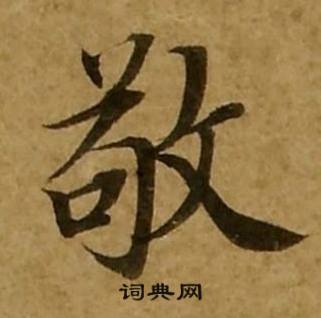 敬
词典网